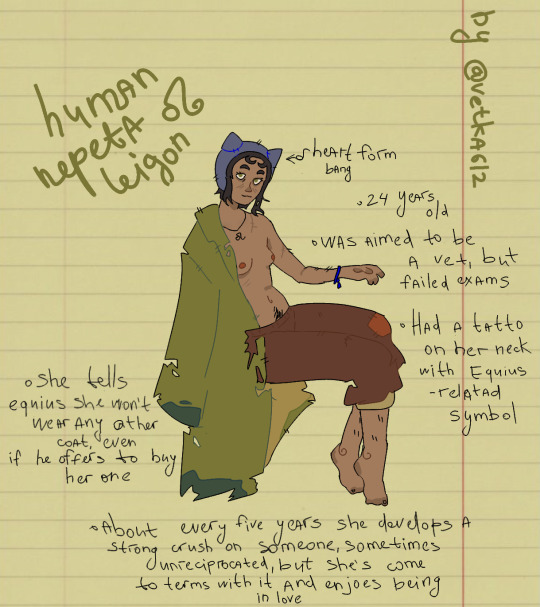 human
nepeta ♌
leigon
by @vetka612
heart form
bang
24 years
old
was aimed to be
a vet, but
failed exams
Had a tatto
on her neck
with Equius
-related
symbol
She tells
equius she won't
wear any other
coat, even
if he offers to buy
her one
About every five years she develops a
strong crush on someone, sometimes
unreciprocated, but she's come
to terms with it and enjoes being
in love